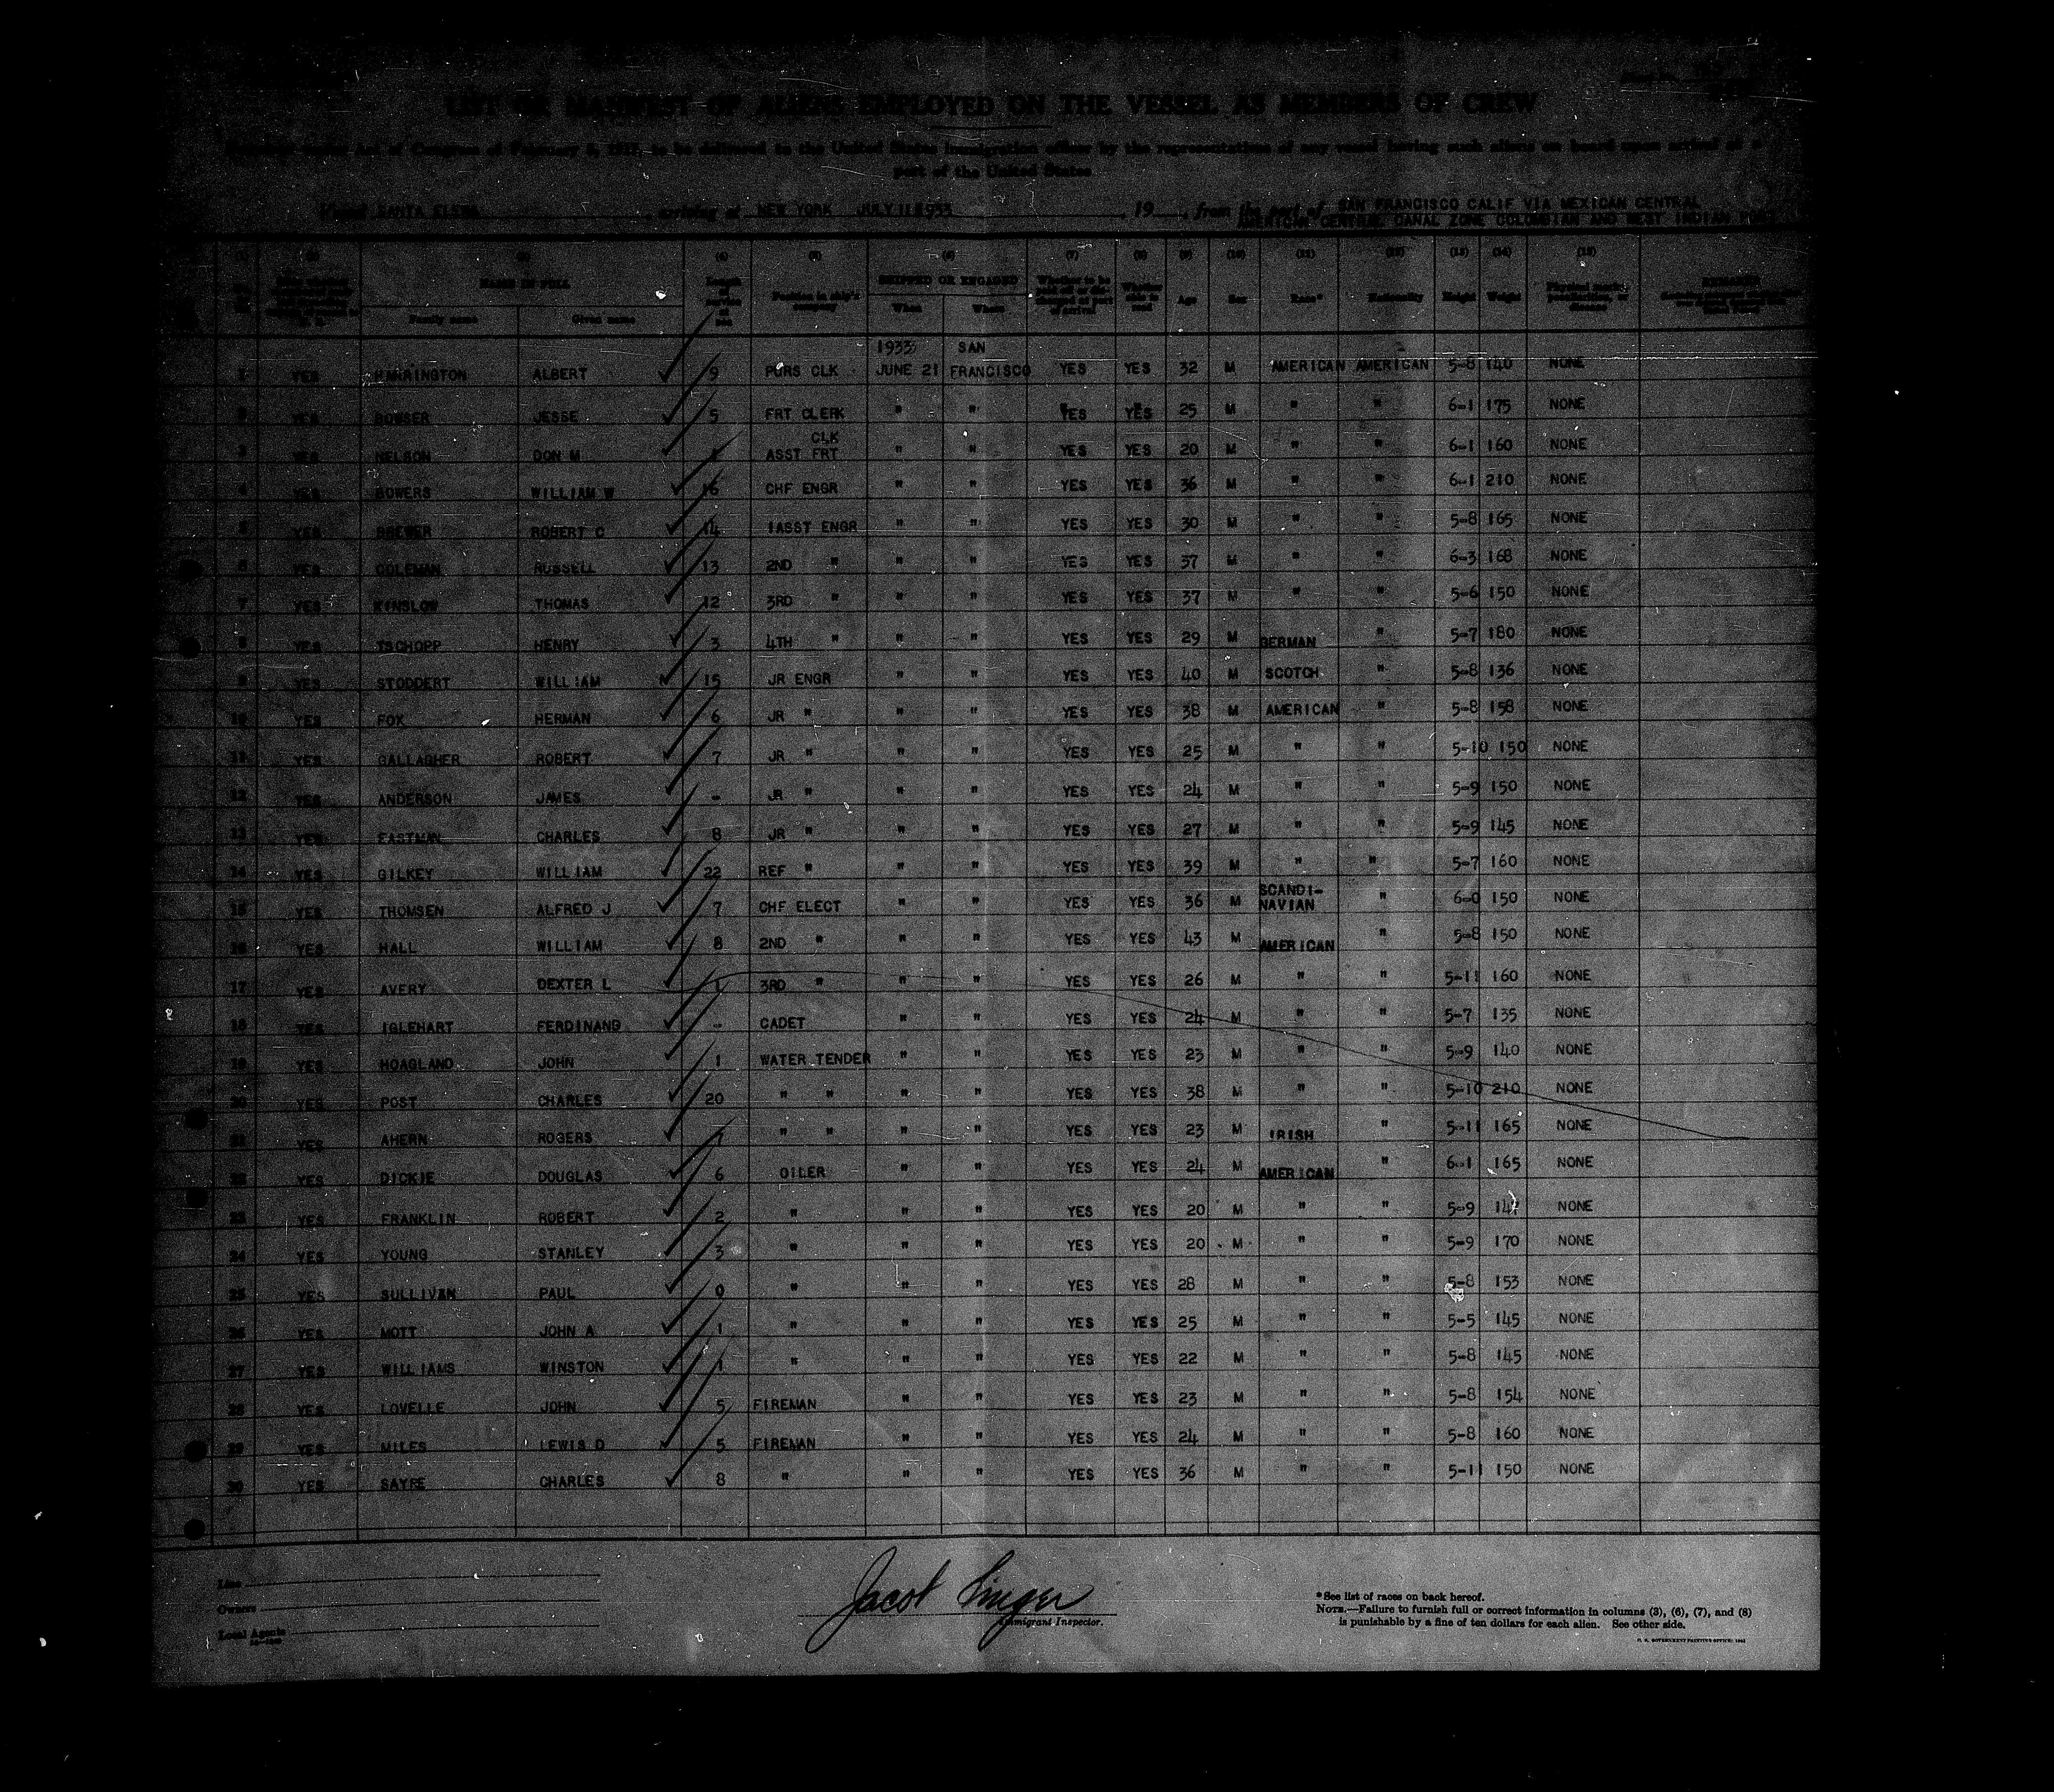 LIST OR MANIFEST OF ALIENS EMPLOYED ON THE VESSEL AS MEMBERS OF CREW
Required under Act of Congress of February 5, 1917, to be delivered to the United States immigration officer by the representatives of any vessel having such aliens on board upon arrival at a
port of the United States
Vessel SANTA ELENA, arriving at NEW YORK JULY 11 1933, 19, from the port of SAN FRANCISCO CALIF VIA MEXICAN CENTRAL
AMERICAN CENTRAL CANAL ZONE COLOMBIAN AND WEST INDIAN
(4) (5) (6) (7) (8) (9) (10) (11) (12) (13) (14) (15)
NAME IN FULL Length of service at sea Position in ship's company SHIPPED OR ENGAGED Age Sex Race* Nationality Height Weight REMARKS
Family name Given name When Where
1933 SAN
1 YES HARRINGTON ALBERT 9 PURS CLK JUNE 21 FRANCISCO YES YES 32 M AMERICAN AMERICAN 5-8 140 NONE
2 YES BOWSER JESSE 5 FRT CLERK " " YES YES 25 M " " 6-1 175 NONE
CLK
3 YES NELSON DON M ASST FRT " " YES YES 20 M " " 6-1 160 NONE
4 YES BOWERS WILLIAM W 16 CHF ENGR " " YES YES 36 M " " 6-1 210 NONE
5 YES BREWER ROBERT C 14 1ASST ENGR " " YES YES 30 M " " 5-8 165 NONE
6 YES COLEMAN RUSSELL 13 2ND " " " YES YES 37 M " " 6-3 168 NONE
7 YES KINSLOW THOMAS 12 3RD " " " YES YES 37 M " " 5-6 150 NONE
8 YES TSCHOPP HENRY 3 4TH " " " YES YES 29 M GERMAN " 5-7 180 NONE
9 YES STODDERT WILLIAM 15 JR ENGR " " YES YES 40 M SCOTCH " 5-8 136 NONE
10 YES FOX HERMAN 6 JR " " " YES YES 38 M AMERICAN " 5-8 158 NONE
11 YES GALLAGHER ROBERT 7 JR " " " YES YES 25 M " " 5-10 150 NONE
12 YES ANDERSON JAMES - JR " " " YES YES 24 M " " 5-9 150 NONE
13 YES EASTMAN CHARLES 8 JR " " " YES YES 27 M " " 5-9 145 NONE
14 YES GILKEY WILLIAM 22 REF " " " YES YES 39 M " " 5-7 160 NONE
15 YES THOMSEN ALFRED J 7 CHF ELECT " " YES YES 36 M SCANDI-NAVIAN " 6-0 150 NONE
16 YES HALL WILLIAM 8 2ND " " " YES YES 43 M AMERICAN " 5-8 150 NONE
17 YES AVERY DEXTER L 1 3RD " " " YES YES 26 M " " 5-11 160 NONE
18 YES IGLEHART FERDINAND - CADET " " YES YES 24 M " " 5-7 135 NONE
19 YES HOAGLAND JOHN 1 WATER TENDER " " YES YES 23 M " " 5-9 140 NONE
20 YES POST CHARLES 20 " " " " YES YES 38 M " " 5-10 210 NONE
21 YES AHERN ROGERS " " " " YES YES 23 M IRISH " 5-11 165 NONE
22 YES DICKIE DOUGLAS 6 OILER " " YES YES 24 M AMERICAN " 6-1 165 NONE
23 YES FRANKLIN ROBERT 2 " " " YES YES 20 M " " 5-9 NONE
24 YES YOUNG STANLEY 3 " " " YES YES 20 M " " 5-9 170 NONE
25 YES SULLIVAN PAUL 0 " " " YES YES 28 M " " 5-8 153 NONE
26 YES MOTT JOHN A 1 " " " YES YES 25 M " " 5-5 145 NONE
27 YES WILLIAMS WINSTON 1 " " " YES YES 22 M " " 5-8 145 NONE
28 YES LOVELLE JOHN 5 FIREMAN " " YES YES 23 M " " 5-8 154 NONE
29 YES MILES LEWIS D 5 FIREMAN " " YES YES 24 M " " 5-8 160 NONE
30 YES SAYRE CHARLES 8 " " " YES YES 36 M " " 5-11 150 NONE
Line
Owners
Local Agents
Jacob Singer
Immigrant Inspector.
*See list of races on back hereof.
NOTE.—Failure to furnish full or correct information in columns (3), (6), (7), and (8)
is punishable by a fine of ten dollars for each alien. See other side.